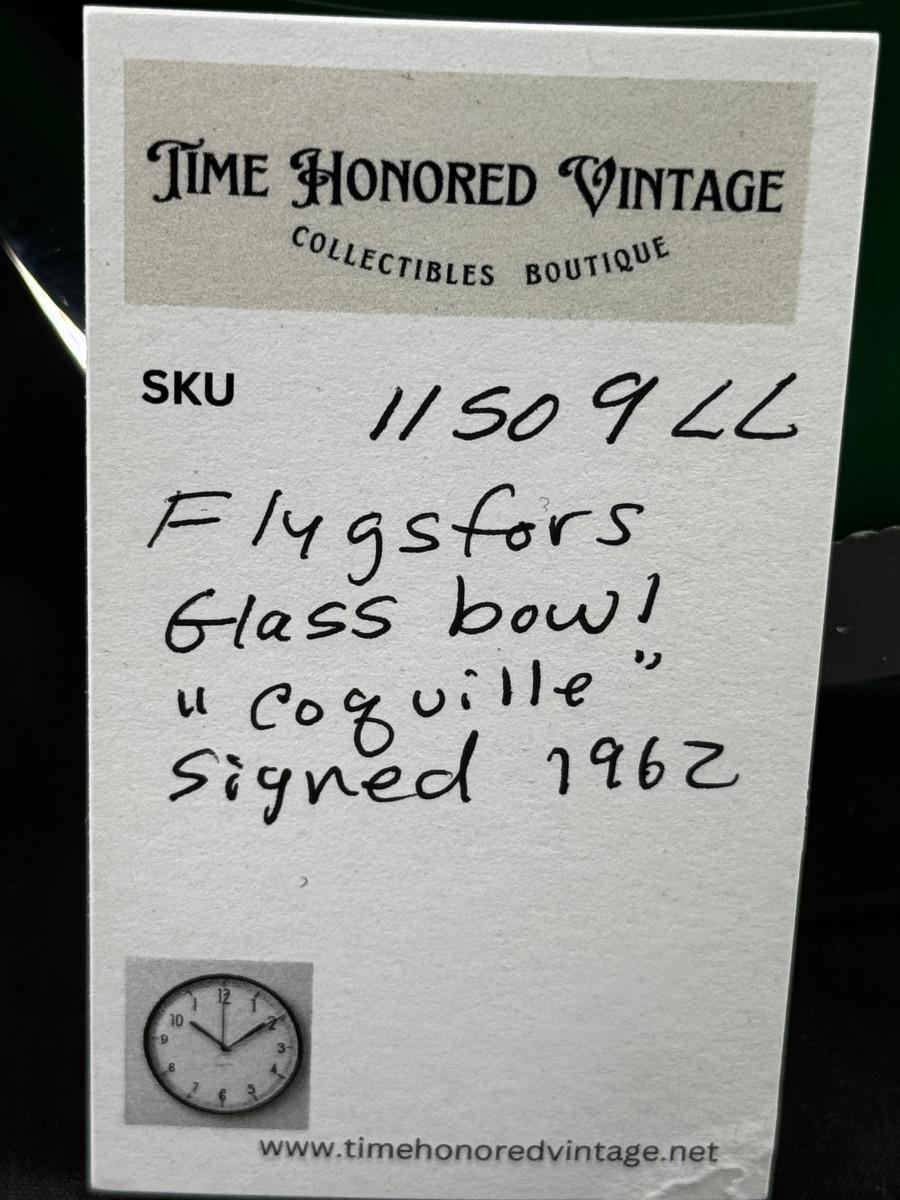 TIME HONORED VINTAGE
COLLECTIBLES BOUTIQUE
SKU 11509LL
Flygsfors
Glass bowl
"Coquille"
Signed 1962
12
1
2
3
4
5
6
7
8
9
10
1
www.timehonoredvintage.net